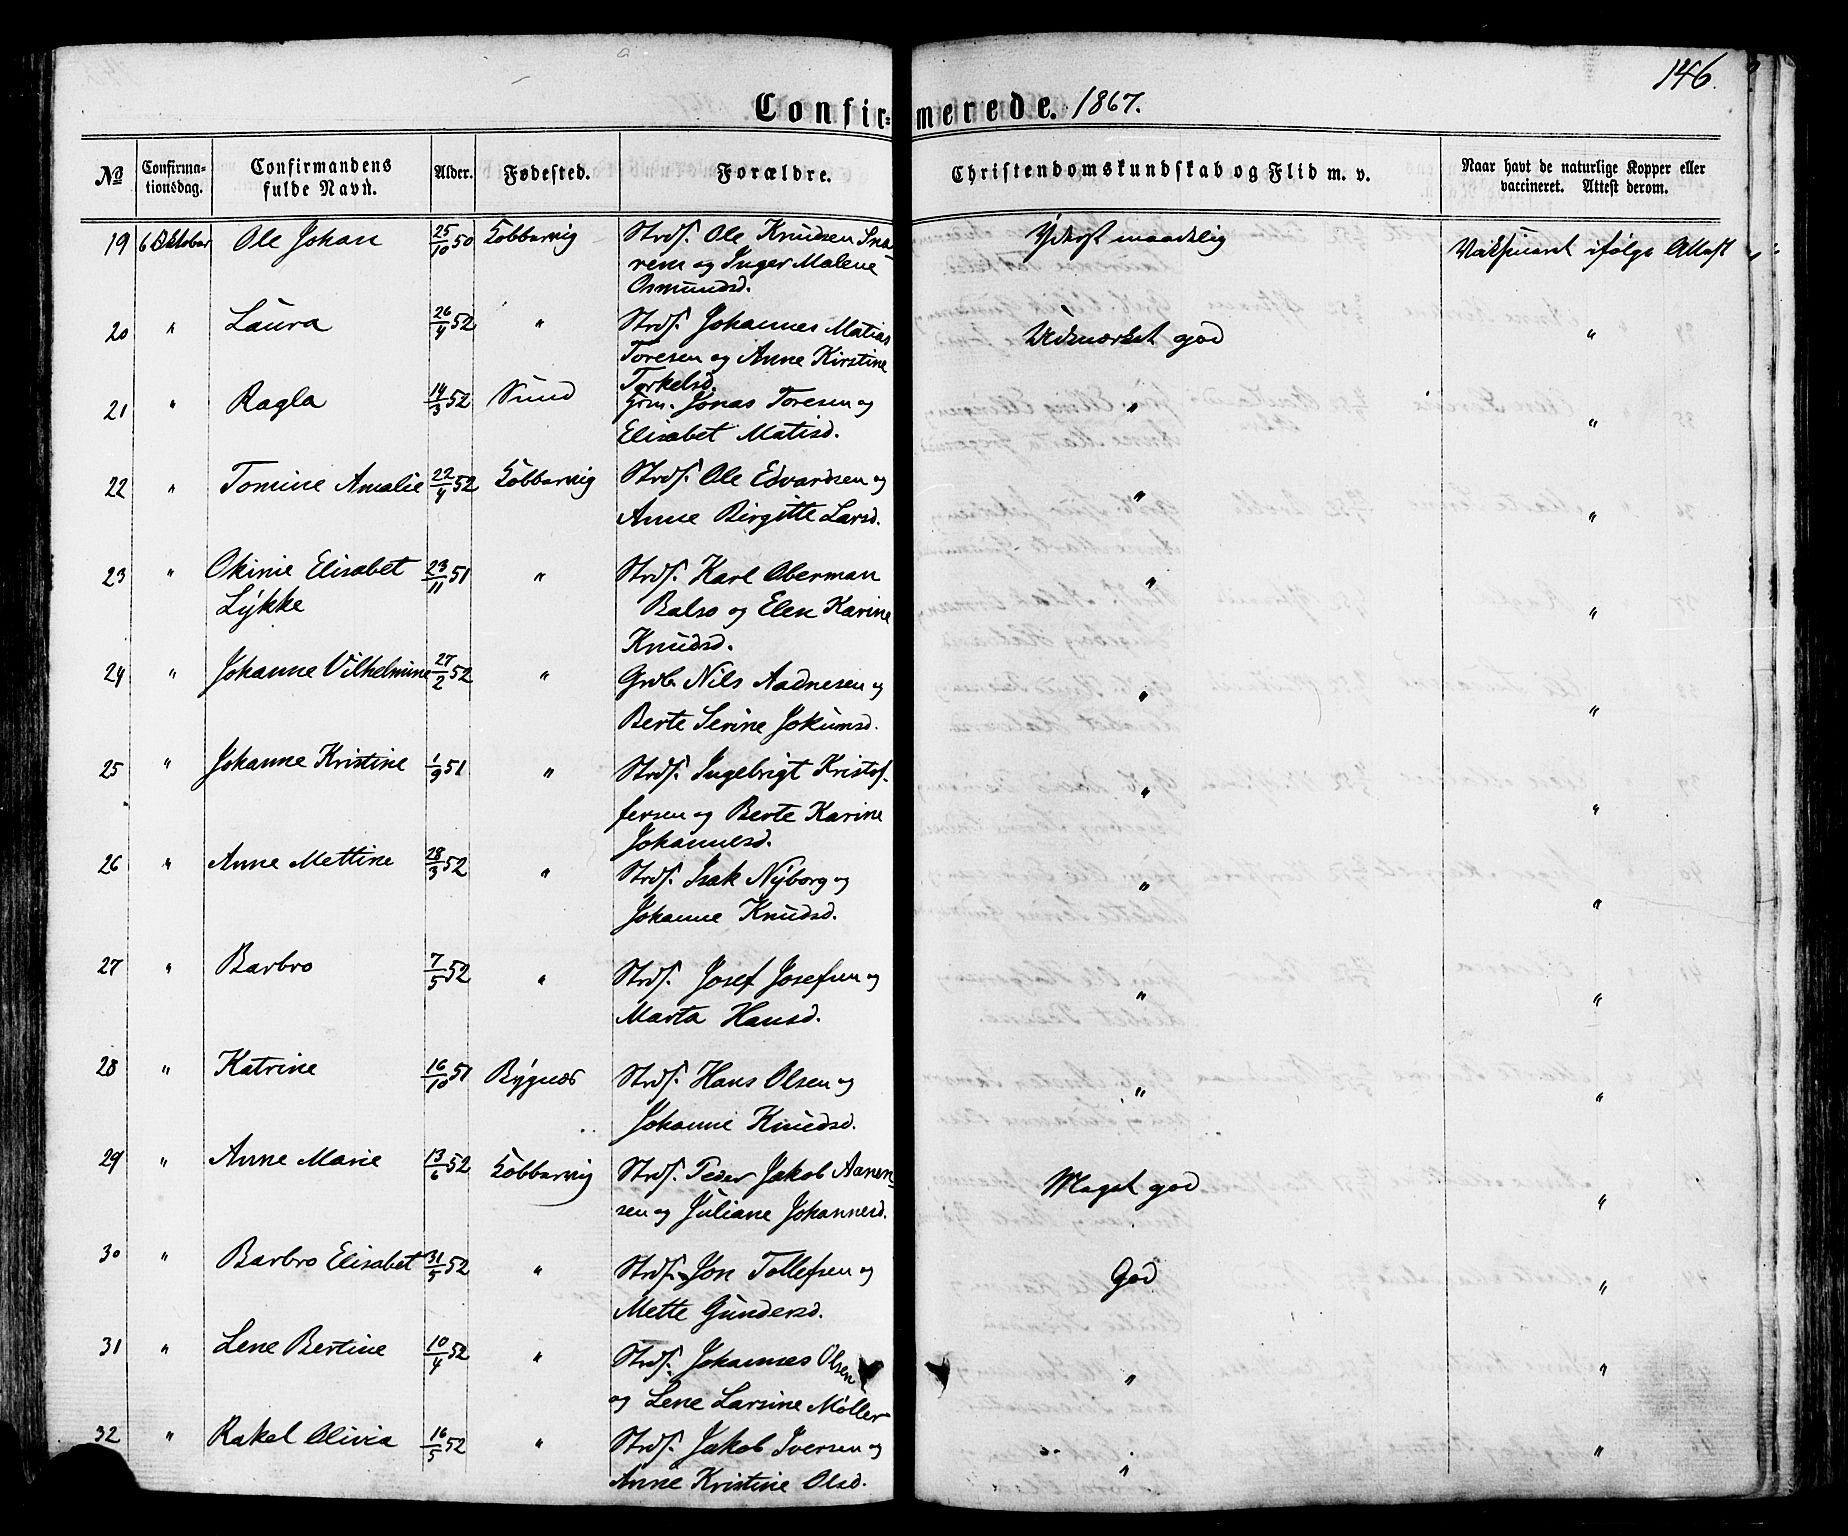 146.
Confir= merede. 1867.
No Confirma-tionsdag. Confirmandens fulde Navn. Alder. Fødested. Forældre. Christendomskundskab og Flid m. v. Naar havt de naturlige Kopper eller vaccineret. Attest derom.
19 6 Oktober Ole Johan 25/10 50 Kobbervig Strds. Ole Knudsen Sna-
rem og Inger Malene
Osmundsd. Yderst maadelig Vaksineret ifølge Attest
20 " Laura 26/4 52 " Strds. Johannes Matias
Toresen og Anne Kirstine
Torkelsd. Udmærket god "
21 " Ragla 14/3 52 Sund Grm. Jonas Toresen og
Elisabet Matisd. " "
22 " Tomine Amalie 22/4 52 Kobbervig Strds. Ole Edvardsen og
Anne Birgitte Larsd. " "
23 " Okinie Elisabet
Lykke 23/11 51 " Strds. Karl Oberman
Balso og Elen Karine
Knudsd. " "
24 " Johanne Vilhelmine 27/2 52 " Grdb. Nils Aadnesen og
Berte Serine Jokumsd. " "
25 " Johanne Kristine 1/9 51 " Strds. Ingebrigt Kristof-
fersen og Berte Karine
Johannesd. " "
26 " Anne Mettine 28/3 52 " Strds. Isak Nyborg og
Johanne Knudsd. " "
27 " Barbro 7/5 52 " Strds. Josef Josefsen og
Marta Hansd. " "
28 " Katrine 16/10 51 Bygnes Strds. Hans Olsen og
Johanne Knudsd. " "
29 " Anne Marie 13/6 52 Kobbervig Strds. Peder Jakob Aanen-
sen og Juliane Johannesd. Meget god "
30 " Barbro Elisabet 31/5 52 " Strds. Jon Tollefsen og
Mette Gundersd. God "
31 " Lene Bertine 10/4 52 " Strds. Johannes Olsen
og Lene Larsine Møller " "
32 " Rakel Olivia 16/5 52 " Strds. Jakob Iversen og
Anne Kristine Olsd. " "